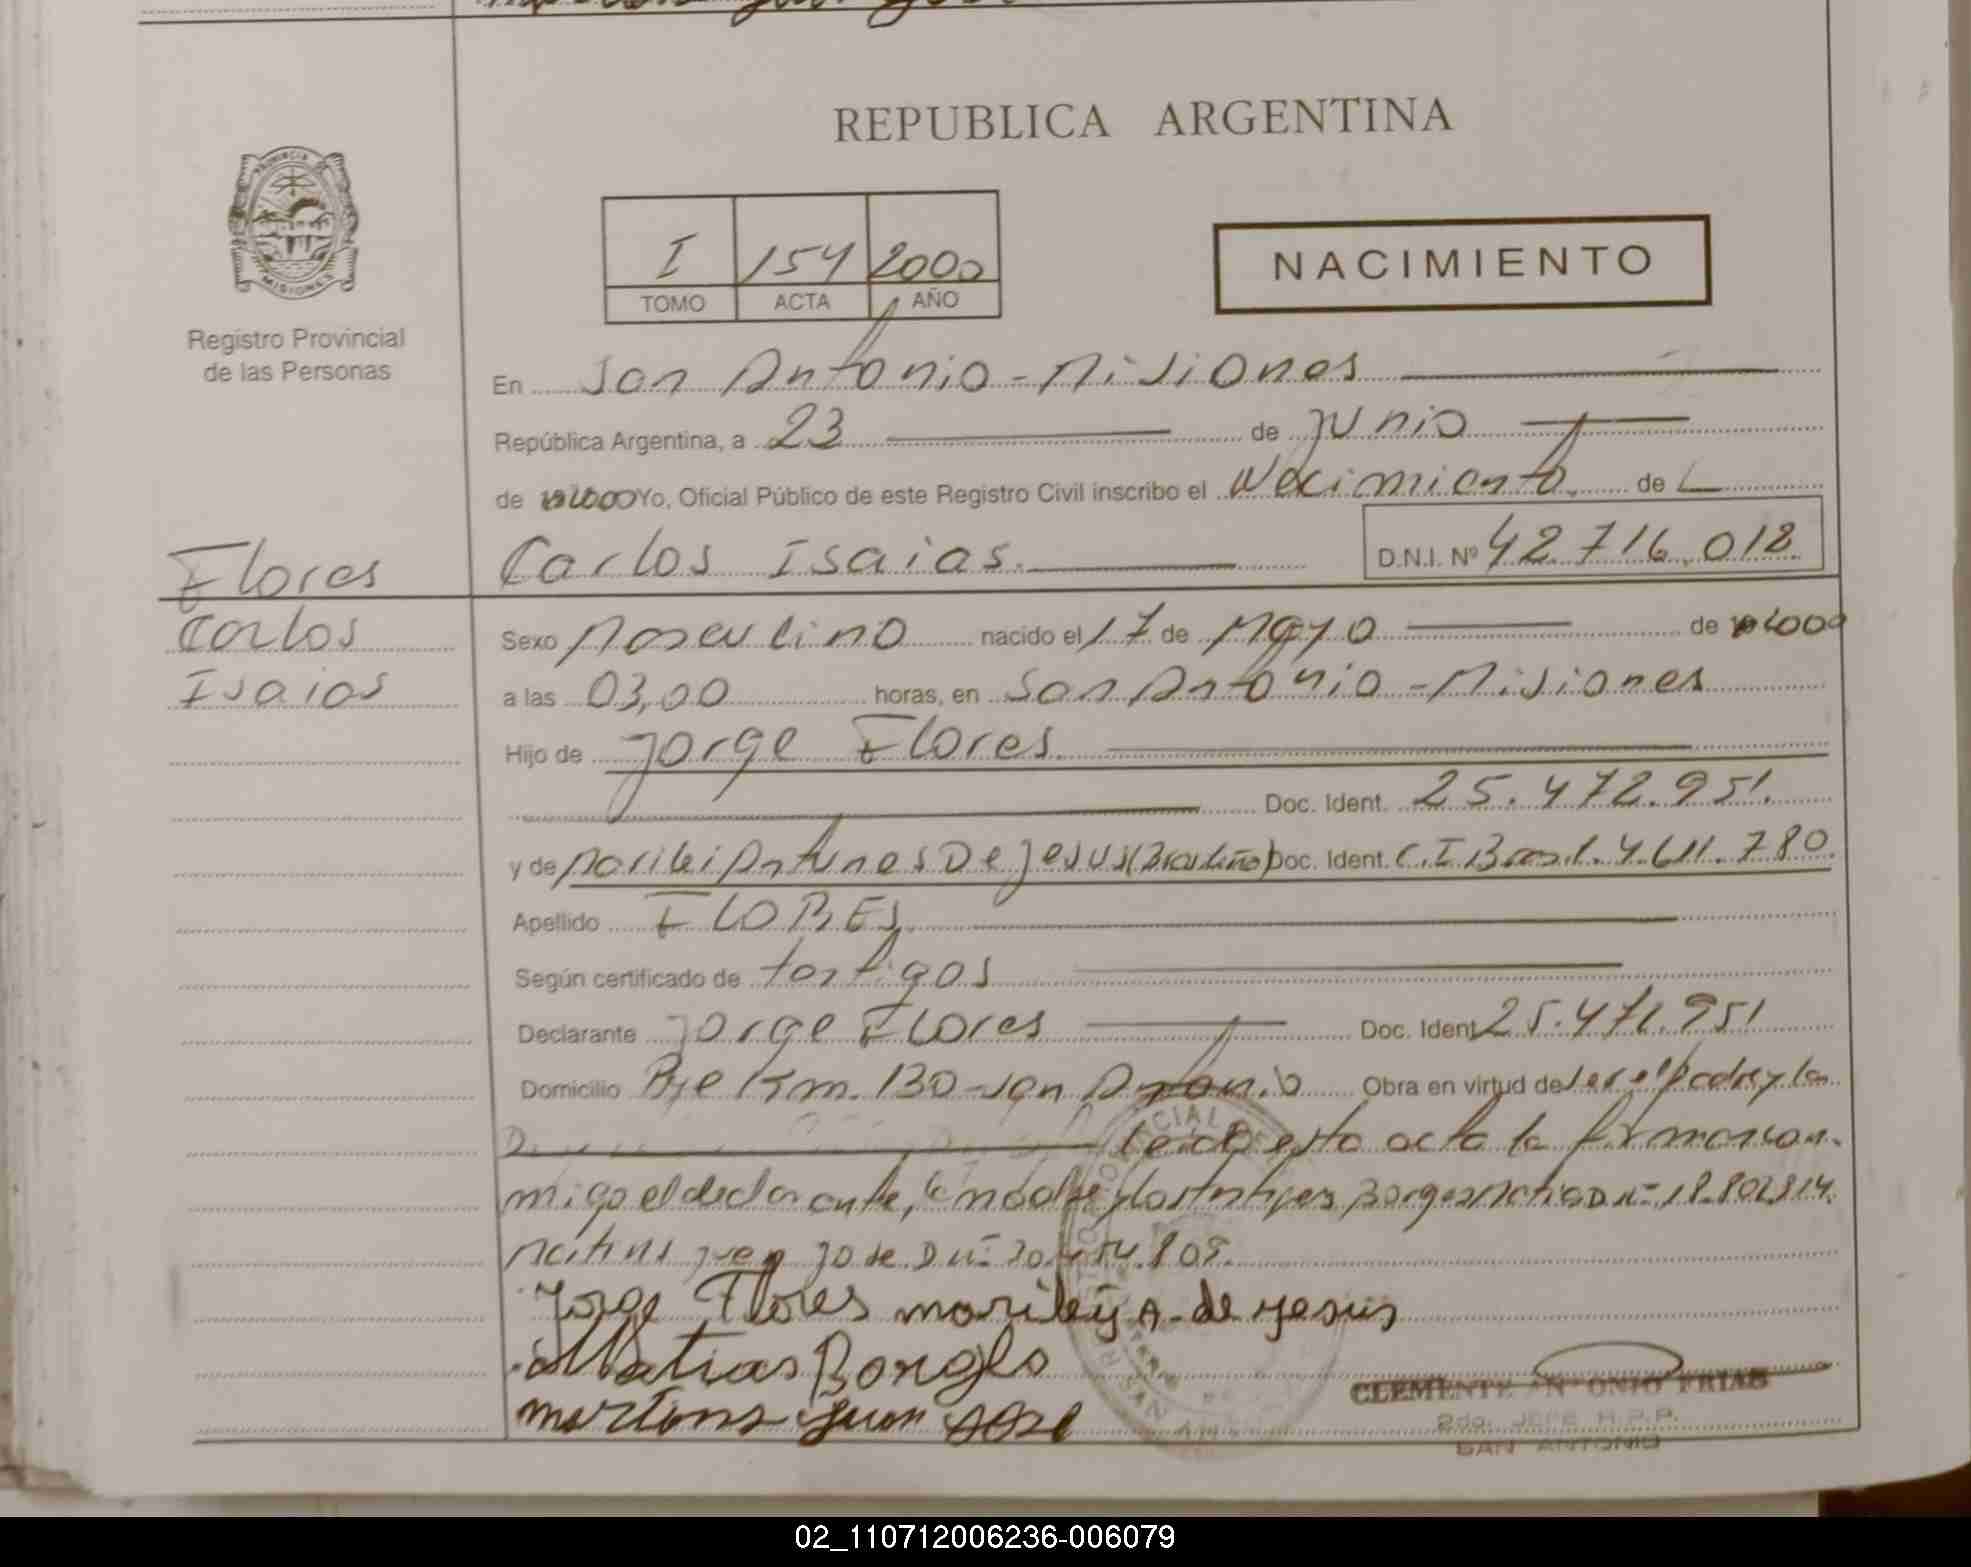 REPUBLICA ARGENTINA
PROVINCIA DE
MISIONES
Registro Provincial
de las Personas
I 154 2000
TOMO ACTA AÑO
NACIMIENTO
En San Antonio - Misiones
República Argentina, a 23 de junio
de 2000 Yo, Oficial Público de este Registro Civil inscribo el Nacimiento de
Carlos Isaias. D.N.I. Nº 42.716.018
Flores
Carlos
Isaias
Sexo Masculino nacido el 17 de Mayo de 2000
a las 03,00 horas, en San Antonio - Misiones
Hijo de Jorge Flores.
Doc. Ident. 25.472.951.
y de Antunes De Jesus Doc. Ident. C.I Bras. 4.611.780
Apellido FLORES
Según certificado de testigos
Declarante Jorge Flores Doc. Ident 25.472.951
Domicilio Pje Km. 130 - San Antonio Obra en virtud de ser el padre y la
Leida esta acta la firman con-
migo el declarante, la madre y los testigos, Borges Matias D nº 18.802.814.
Martins Juan Jose. D nº
Jorge Flores marileý A. de jesus
Matias Borges
martins juan jose
CLEMENTE ANTONIO FRIAS
2do. JEFE R.P.P.
SAN ANTONIO
02_110712006236-006079